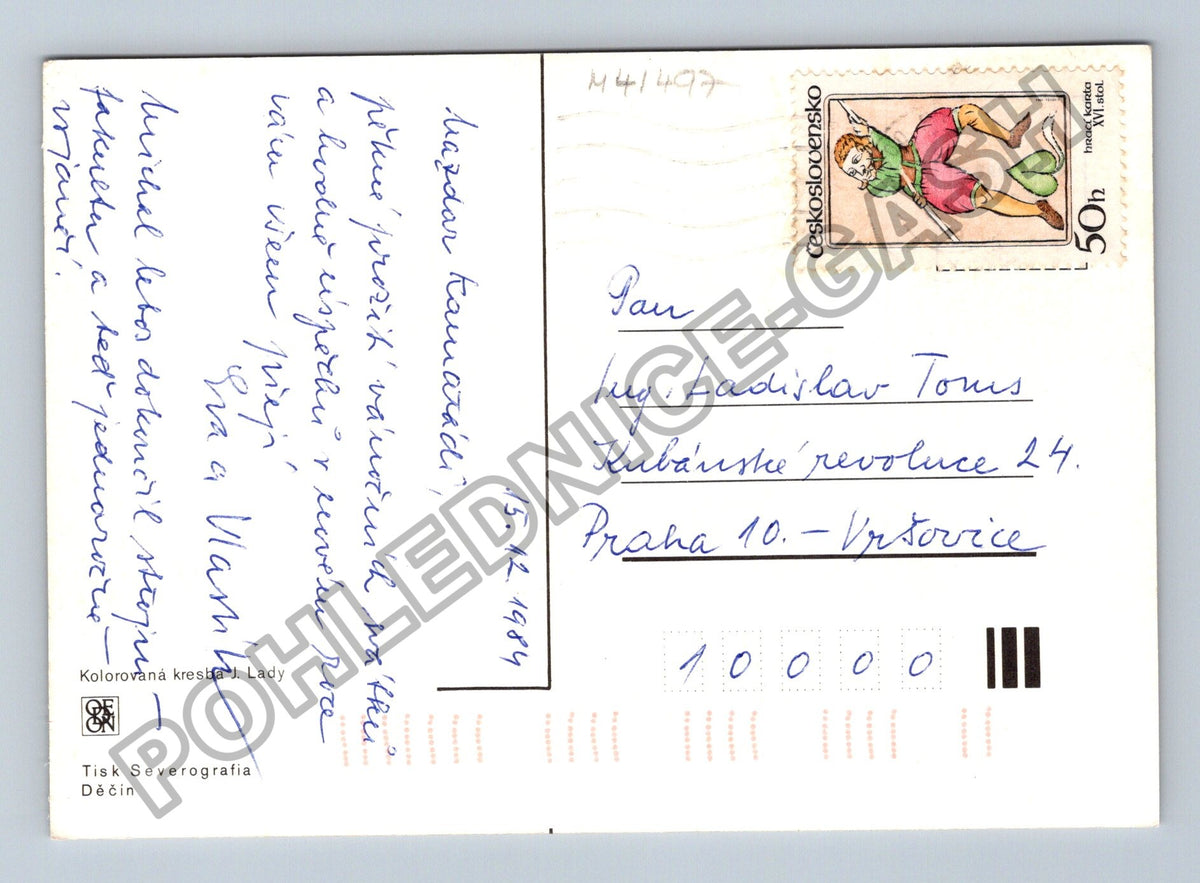 M41/497
Československo
hrací karta
XVI. stol.
50h
Nazdar kamarádi,
15.12.1984
pěkné prožití vánočních svátků
a hodně úspěchů v novém roce
vám všem přejí
Eva a Vlastík
Michal letos dokončil strojní
fakultu a teď jednoročně
vojančí.
Pan
Ing. Ladislav Toms
Kubánské revoluce 24.
Praha 10. – Vršovice
10000
Kolorovaná kresba J. Lady
ODEON
Tisk Severografia
Děčín
POHLEDNICE-GASH